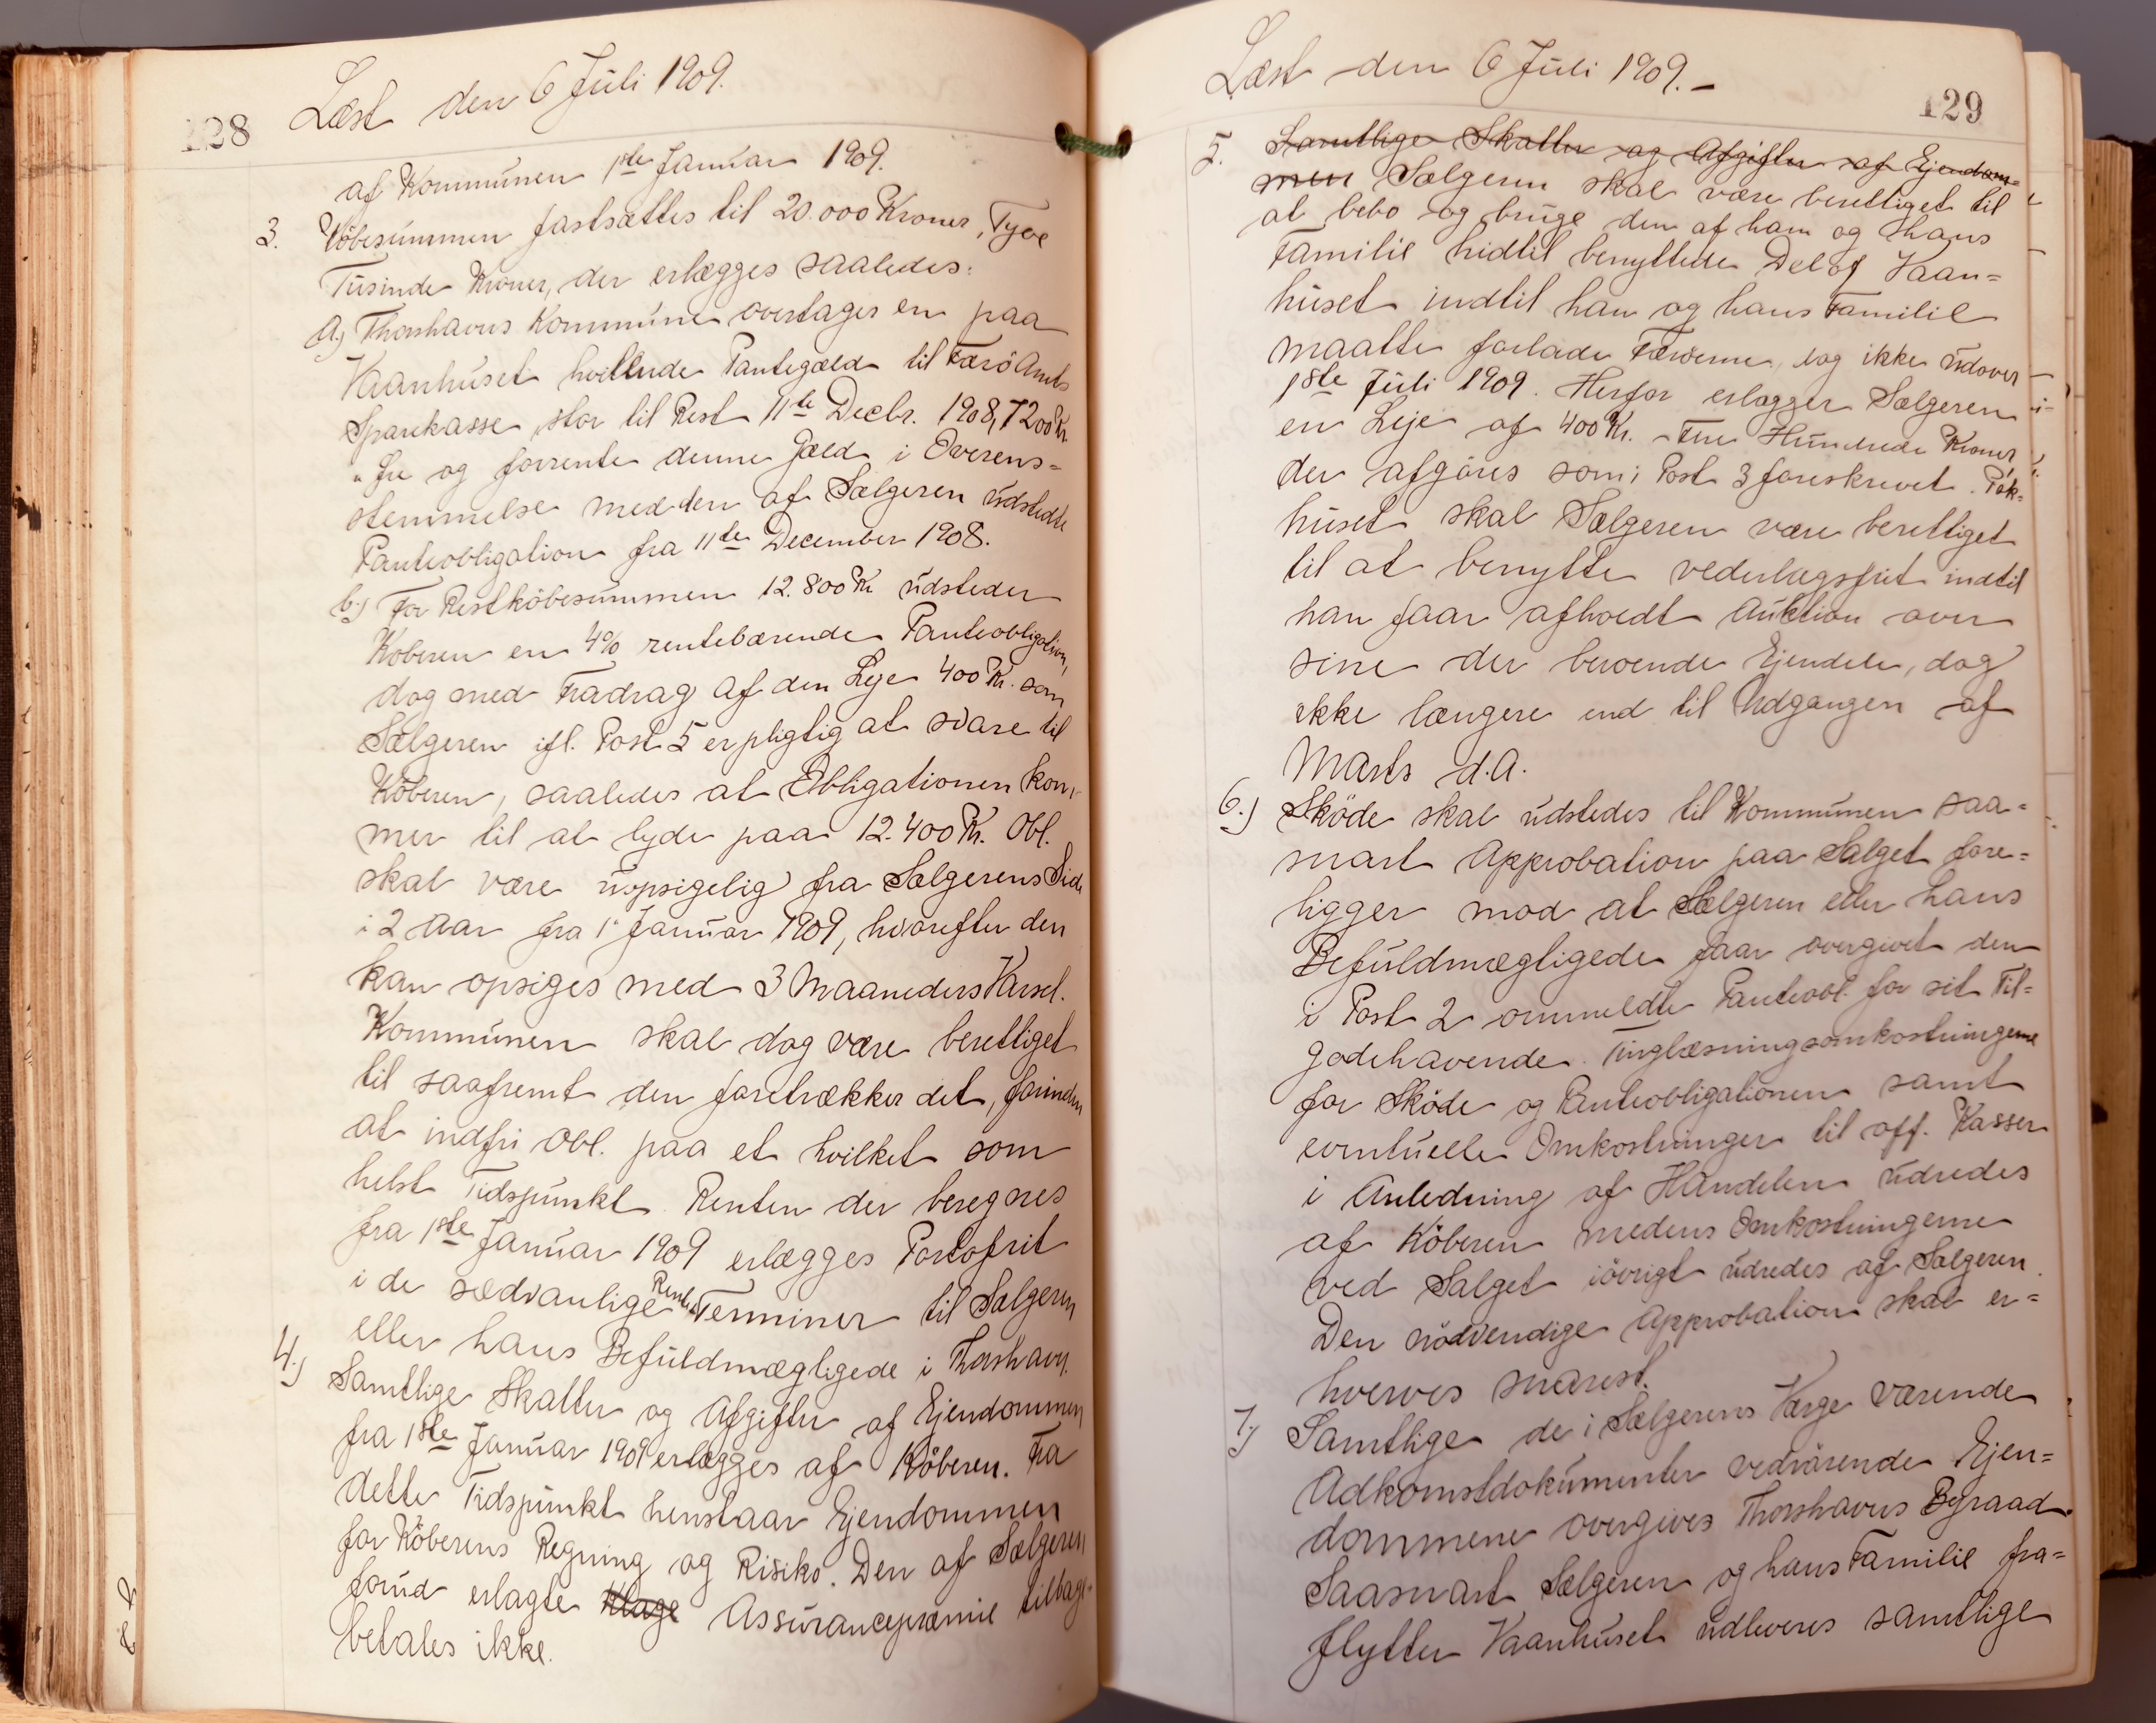 128
Læst den 6 Juli 1909.
af Kommunen 1ste Januar 1909.
3. Köbesummen fastsættes til 20.000 Kroner, Tyve
Tusinde Kroner, der erlægges saaledes:
a) Thorshavns Kommune overtager en paa
Vaanhuset hvilende Pantegæld til Færö Amts
Sparekasse, stor til Rest 11te Decbr. 1908, 7200 Kr.
og forrente denne Gæld i Overens=
stemmelse med den af Sælgeren udstedte
Panteobligation fra 11te December 1908.
b.) For Restköbesummen 12.800 Kr udsteder
Köberen en 4% rentebærende Panteobligation,
dog med Fradrag af den Leje 400 Kr. som
Sælgeren ifl. Post 5 er pligtig at svare til
Köberen, saaledes at Obligationen kom-
mer til at lyde paa 12.400 Kr. Obl.
skal være uopsigelig fra Sælgerens Side
i 2 Aar fra 1' Januar 1909, hvorefter den
kan opsiges med 3 Maaneders Varsel.
Kommunen skal dog være berettiget
til saafremt den foretrækker det, forinden
at indfri Obl. paa et hvilket som
helst Tidspunkt. Renten der beregnes
fra 1ste Januar 1909 erlægges Portofrit
i de sædvanlige Rente Terminer til Sælgeren
eller hans Befuldmægligede i Thorshavn.
4.) Samtlige Skatter og Afgifter af Ejendommen
fra 1ste Januar 1909 erlægges af Köberen. Fra
dette Tidspunkt henstaar Ejendommen
for Köberens Regning og Risiko. Den af Sælgeren
forud erlagte Assurancepræmie tilbage-
betales ikke.
Læst den 6 Juli 1909.-
129
5. Samtlige Skatter og Afgifter af Ejendom=
men Sælgeren skal være berettiget til
at bebo og bruge den af ham og hans
Familie hidtil benyttede Del af Vaan=
huset indtil han og hans Familie
maatte forlade Færöerne, dog ikke udover
1ste Juli 1909. Herfor erlægger Sælgeren
en Leje af 400 Kr. - Fire Hundrede Kroner,
der afgöres som i Post 3 foreskrevet. Pak-
huset skal Sælgeren være berettiget
til at benytte vederlagsfrit indtil
han faar afholdt Auktion over
sine der beroende Ejendele, dog
ikke længere end til Udgangen af
Marts d.A.
6.) Sköde skal udstedes til Kommunen saa=
snart Approbation paa Salget fore=
ligger mod at Sælgeren eller hans
Befuldmægligede faar overgivet den
i Post 2 ommeldte Panteobl. for sit Til=
godehavende. Tinglæsningsomkostningerne
for Sköde og Panteobligationen samt
eventuelle Omkostninger til off. Kasser
i Anledning af Handelen udredes
af Köberen medens Omkostningerne
ved Salget iövrigt udredes af Sælgeren.
Den nödvendige Approbation skal er=
hverves snarest.
7.) Samtlige de i Sælgerens Værge værende
Adkomstdokumenter vedrörende Ejen=
dommene overgives Thorshavns Byraad.
Saasnart Sælgeren og hans Familie fra=
flytter Vaanhuset udleveres samtlige